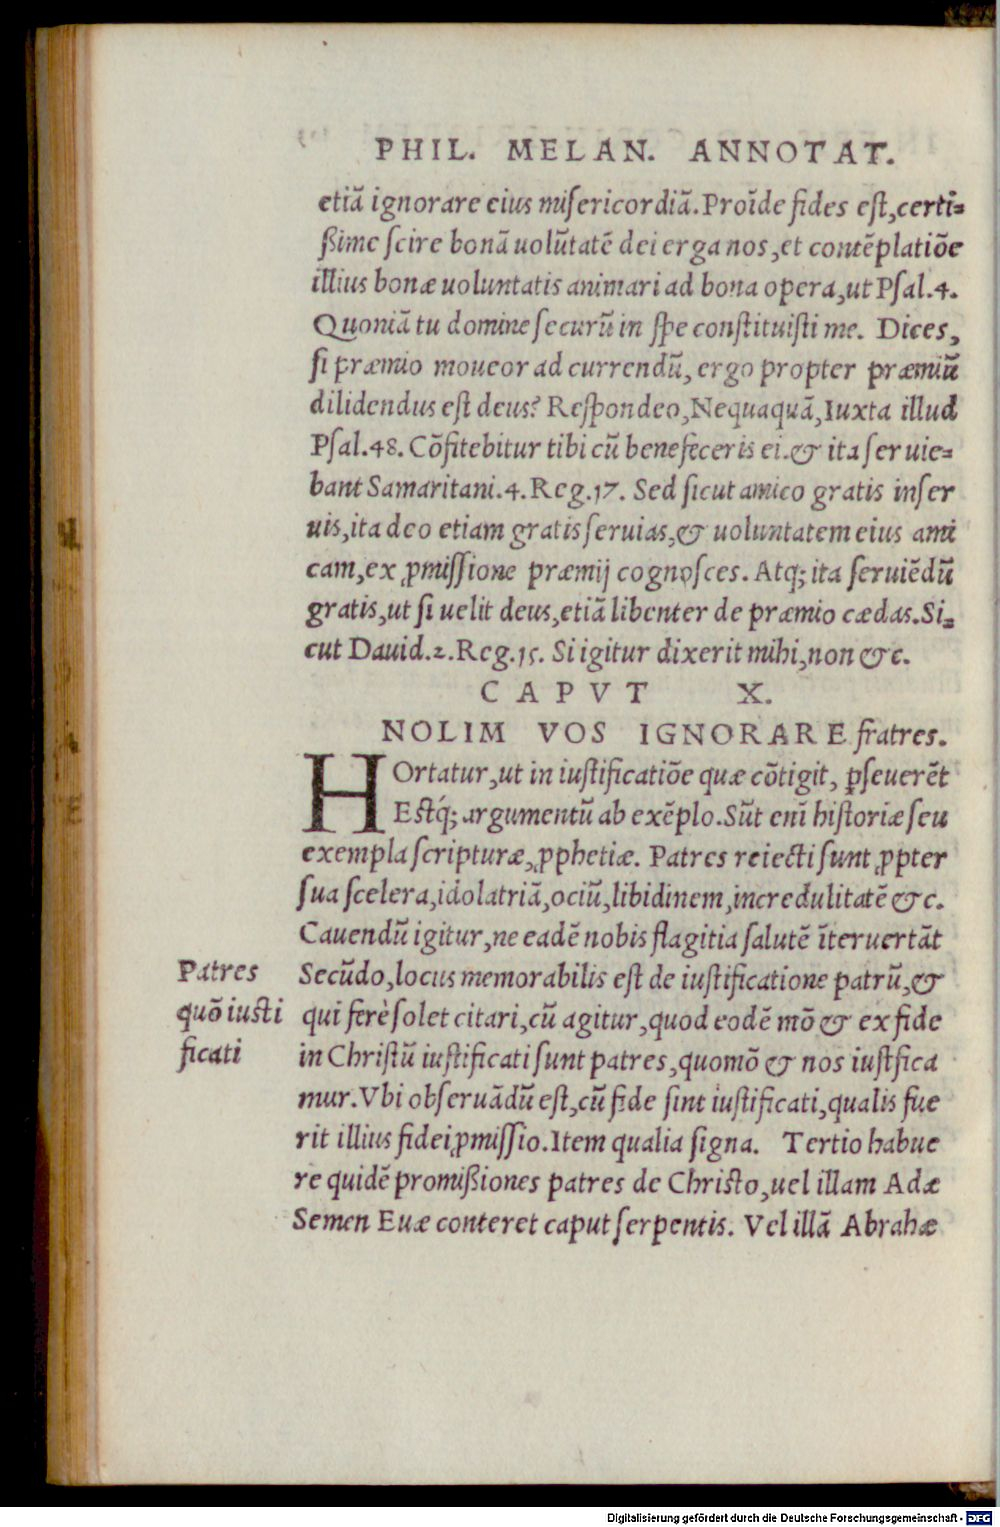 PHIL. MELAN. ANNOTAT.
etiã ignorare eius misericordiã. Proĩde fides est, certi=
ßime scire bonã uolũtatẽ dei erga nos, et contẽplatiõe
illius bonæ uoluntatis animari ad bona opera, ut Psal.4.
Quoniã tu domine securũ in spe constituisti me. Dices,
si præmio moueor ad currendũ, ergo propter præmiũ
dilidendus est deus? Respondeo, Nequaquã, Iuxta illud
Psal.48. Cõfitebitur tibi cũ benefeceris ei. & ita seruie=
bant Samaritani.4. Reg.17. Sed sicut amico gratis inser
uis, ita deo etiam gratis seruias, & uoluntatem eius ami
cam, ex ꝓmissione præmij cognosces. Atq; ita seruiẽdũ
gratis, ut si uelit deus, etiã libenter de præmio cædas. Si=
cut Dauid.2. Reg.15. Si igitur dixerit mihi, non &c.
CAPVT X.
NOLIM VOS IGNORARE fratres.
HOrtatur, ut in iustificatiõe quæ cõtigit, ꝑseuerẽt
Estq́; argumentũ ab exẽplo. Sũt enĩ historiæ seu
exempla scripturæ, ꝓphetiæ. Patres reiecti sunt ꝓpter
sua scelera, idolatriã, ociũ, libidinem, incredulitatẽ &c.
Cauendũ igitur, ne eadẽ nobis flagitia salutẽ ĩteruertãt
Patres
quõ iusti
ficati
Secũdo, locus memorabilis est de iustificatione patrũ, &
qui ferè solet citari, cũ agitur, quod eodẽ mõ & ex fide
in Christũ iustificati sunt patres, quomõ & nos iustfica
mur. Vbi obseruãdũ est, cũ fide sint iustificati, qualis fue
rit illius fidei ꝓmissio. Item qualia signa. Tertio habue
re quidẽ promißiones patres de Christo, uel illam Adæ
Semen Euæ conteret caput serpentis. Vel illã Abrahæ
Digitalisierung gefördert durch die Deutsche Forschungsgemeinschaft - DFG